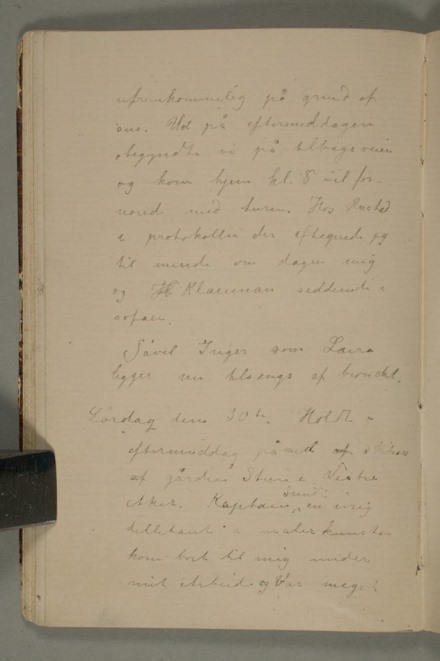 ufremkommelig på grund af
sne. Ud på eftermiddagen
begyndte vi på tilbageveien
og kom hjem kl. 8 vel for-
nøied med turen. Hos
i protokollen der eftegnede jeg
til minde om dagen mig
og Klaerman siddende i
sofaen.
Såvel Inger som Laura
ligger nu tilsengs af bronchit.
Lørdag den 30te. Holdt i
eftermiddag på med skisse
af gården i Vestre
Aker. Kaptain, en ivrig
dilletant i malerkunsten
kom bort til mig under
mit arbeide og var meget